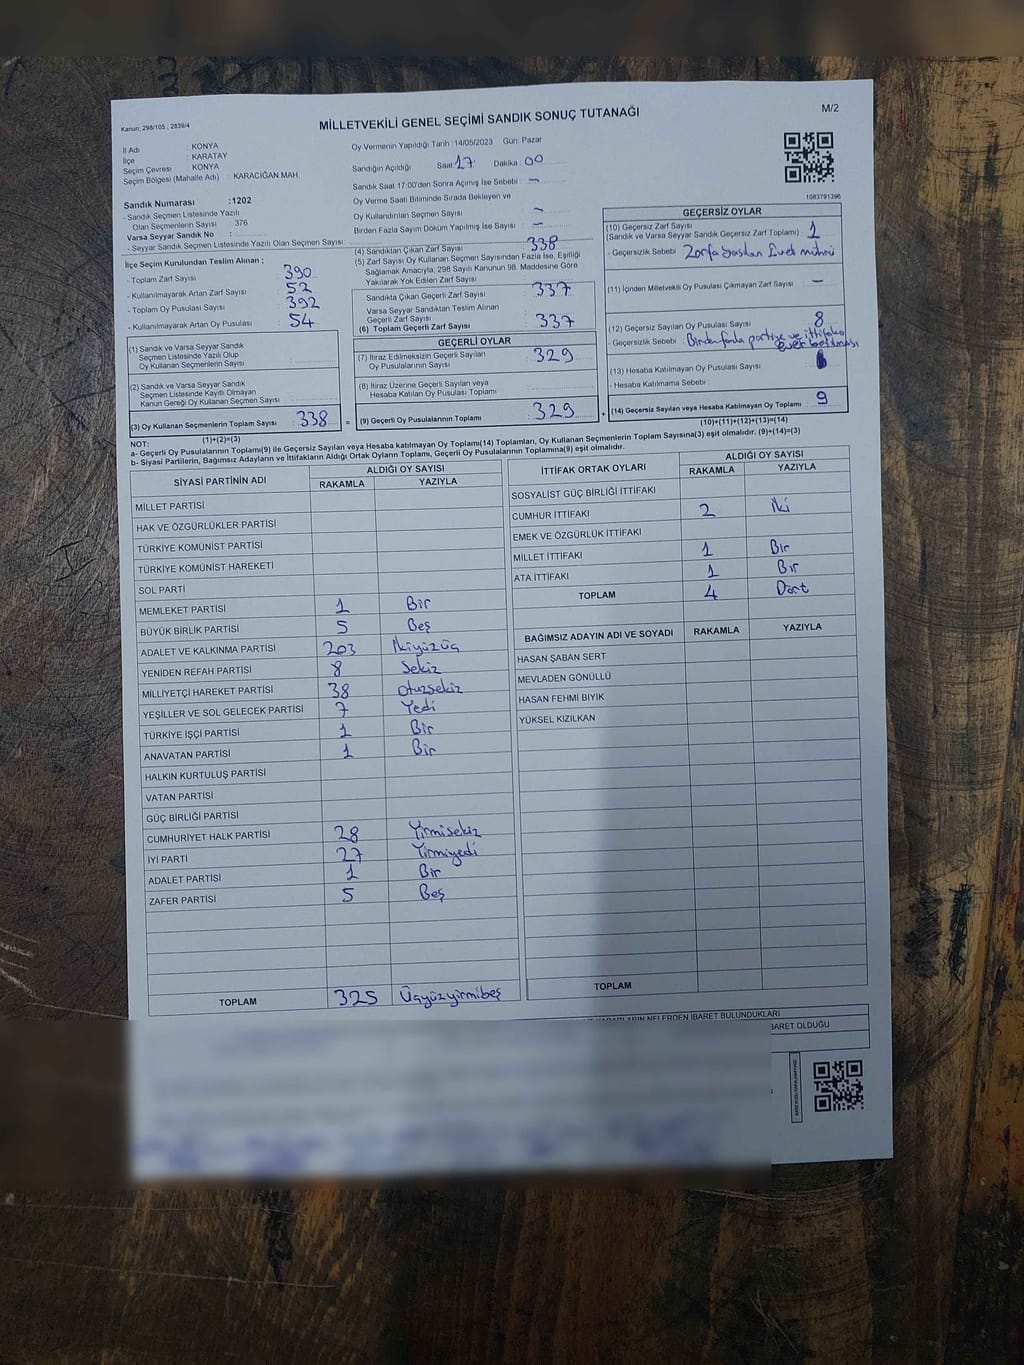 Kanun; 298/105 , 2839/4
MİLLETVEKİLİ GENEL SEÇİMİ SANDIK SONUÇ TUTANAĞI
M/2
İl Adı : KONYA
İlçe : KARATAY
Seçim Çevresi : KONYA
Seçim Bölgesi (Mahalle Adı) : KARACİĞAN MAH
Sandık Numarası :1202
- Sandık Seçmen Listesinde Yazılı
Olan Seçmenlerin Sayısı : 376
Varsa Seyyar Sandık No :
- Seyyar Sandık Seçmen Listesinde Yazılı Olan Seçmen Sayısı:
Oy Vermenin Yapıldığı Tarih 14/05/2023 Gün: Pazar
Sandığın Açıldığı Saat 17 Dakika 00
Sandık Saat 17.00'den Sonra Açımış İse Sebebi : -
Oy Verme Saati Bitiminde Sırada Bekleyen ve
Oy Kullandırılan Seçmen Sayısı : -
Birden Fazla Sayım Döküm Yapılmış İse Sayısı : -
1083791396
İlçe Seçim Kurulundan Teslim Alınan ;
- Toplam Zarf Sayısı : 390
- Kullanılmayarak Artan Zarf Sayısı : 52
- Toplam Oy Pusulası Sayısı : 392
- Kullanılmayarak Artan Oy Pusulası : 54
(1) Sandık ve Varsa Seyyar Sandık
Seçmen Listesinde Yazılı Olup
Oy Kullanan Seçmenlerin Sayısı
(2) Sandık ve Varsa Seyyar Sandık
Seçmen Listesinde Kayıtlı Olmayan
Kanun Gereği Oy Kullanan Seçmen Sayısı
(3) Oy Kullanan Seçmenlerin Toplam Sayısı 338
(1)+(2)=(3)
(4) Sandıktan Çıkan Zarf Sayısı : 338
(5) Zarf Sayısı Oy Kullanan Seçmen Sayısından Fazla İse, Eşitliği
Sağlamak Amacıyla, 298 Sayılı Kanunun 98. Maddesine Göre
Yakılarak Yok Edilen Zarf Sayısı :
Sandıkta Çıkan Geçerli Zarf Sayısı : 337
Varsa Seyyar Sandıktan Teslim Alınan
Geçerli Zarf Sayısı :
(6) Toplam Geçerli Zarf Sayısı : 337
GEÇERLİ OYLAR
(7) İtiraz Edilmeksizin Geçerli Sayılan
Oy Pusulalarının Sayısı : 329
(8) İtiraz Üzerine Geçerli Sayılan veya
Hesaba Katılan Oy Pusulası Toplamı :
= (9) Geçerli Oy Pusulalarının Toplamı : 329 +
GEÇERSİZ OYLAR
(10) Geçersiz Zarf Sayısı
(Sandık ve Varsa Seyyar Sandık Geçersiz Zarf Toplamı) : 1
- Geçersizlik Sebebi : Zarfa basılan Evet mührü
(11) İçinden Milletvekili Oy Pusulası Çıkmayan Zarf Sayısı : -
(12) Geçersiz Sayılan Oy Pusulası Sayısı : 8
- Geçersizlik Sebebi : Birden fazla partiye ve ittifaka
evet basılması
(13) Hesaba Katılmayan Oy Pusulası Sayısı :
- Hesaba Katılmama Sebebi :
(14) Geçersiz Sayılan veya Hesaba Katılmayan Oy Toplamı : 9
(10)+(11)+(12)+(13)=(14)
NOT:
a- Geçerli Oy Pusulalarının Toplamı(9) ile Geçersiz Sayılan veya Hesaba katılmayan Oy Toplamı(14) Toplamları, Oy Kullanan Seçmenlerin Toplam Sayısına(3) eşit olmalıdır. (9)+(14)=(3)
b- Siyasi Partilerin, Bağımsız Adayların ve İttifakların Aldığı Ortak Oyların Toplamı, Geçerli Oy Pusulalarının Toplamına(9) eşit olmalıdır.
SİYASİ PARTİNİN ADI ALDIĞI OY SAYISI
RAKAMLA YAZIYLA
MİLLET PARTİSİ
HAK VE ÖZGÜRLÜKLER PARTİSİ
TÜRKİYE KOMÜNİST PARTİSİ
TÜRKİYE KOMÜNİST HAREKETİ
SOL PARTİ
MEMLEKET PARTİSİ 1 Bir
BÜYÜK BİRLİK PARTİSİ 5 Beş
ADALET VE KALKINMA PARTİSİ 203 İkiyüzüç
YENİDEN REFAH PARTİSİ 8 Sekiz
MİLLİYETÇİ HAREKET PARTİSİ 38 otuzsekiz
YEŞİLLER VE SOL GELECEK PARTİSİ 7 Yedi
TÜRKİYE İŞÇİ PARTİSİ 1 Bir
ANAVATAN PARTİSİ 1 Bir
HALKIN KURTULUŞ PARTİSİ
VATAN PARTİSİ
GÜÇ BİRLİĞİ PARTİSİ
CUMHURİYET HALK PARTİSİ 28 Yirmisekiz
İYİ PARTİ 27 Yirmiyedi
ADALET PARTİSİ 1 Bir
ZAFER PARTİSİ 5 Beş
TOPLAM 325 Üçyüzyirmibeş
İTTİFAK ORTAK OYLARI ALDIĞI OY SAYISI
RAKAMLA YAZIYLA
SOSYALİST GÜÇ BİRLİĞİ İTTİFAKI
CUMHUR İTTİFAKI 2 İki
EMEK VE ÖZGÜRLÜK İTTİFAKI
MİLLET İTTİFAKI 1 Bir
ATA İTTİFAKI 1 Bir
TOPLAM 4 Dört
BAĞIMSIZ ADAYIN ADI VE SOYADI RAKAMLA YAZIYLA
HASAN ŞABAN SERT
MEVLADEN GÖNÜLLÜ
HASAN FEHMİ BIYIK
YÜKSEL KIZILKAN
TOPLAM
NELERDEN İBARET BULUNDUKLARI
BARET OLDUĞU